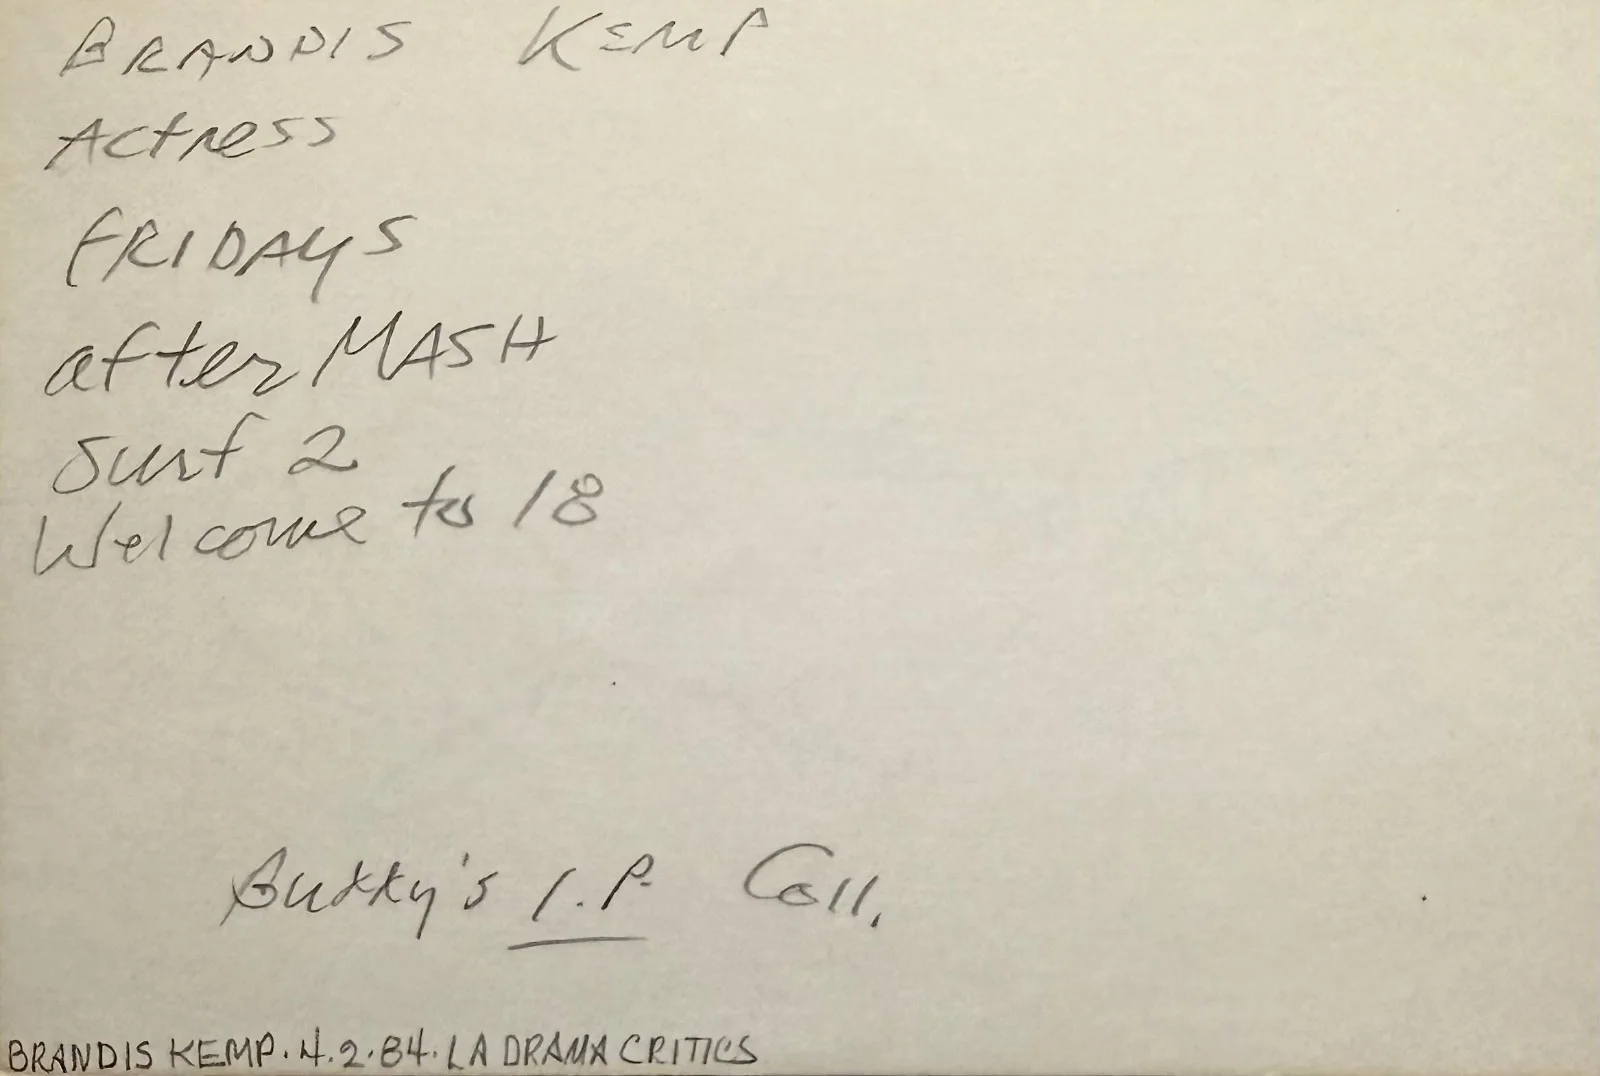 BRANDIS KEMP
Actress
FRIDAYS
after MASH
Surf 2
Welcome to 18
I.P. Coll.
BRANDIS KEMP. 4.2.84. LA DRAMA CRITICS